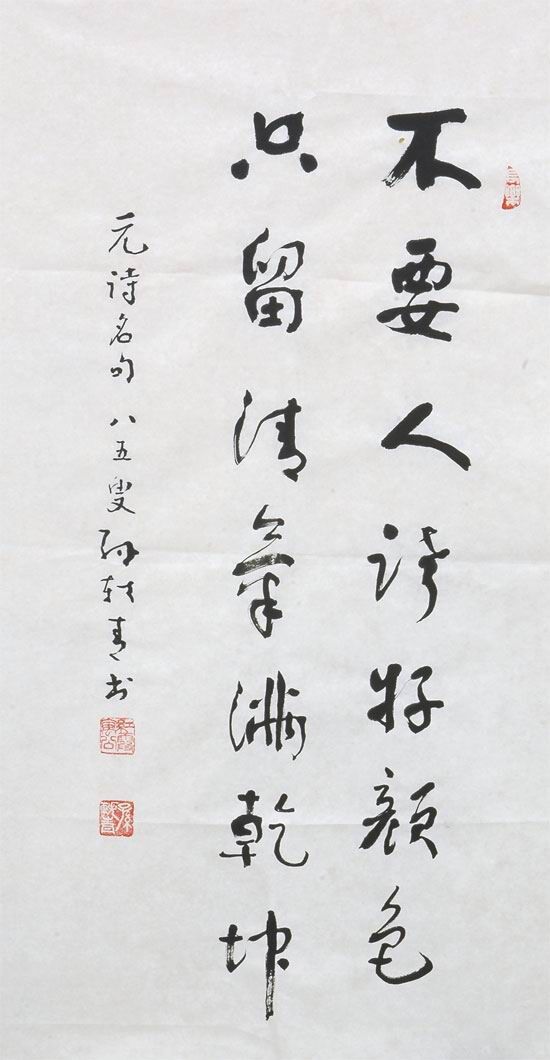 不要人誇好顔色
只留清氣滿乾坤
元詩名句 八五叟孫軼青书